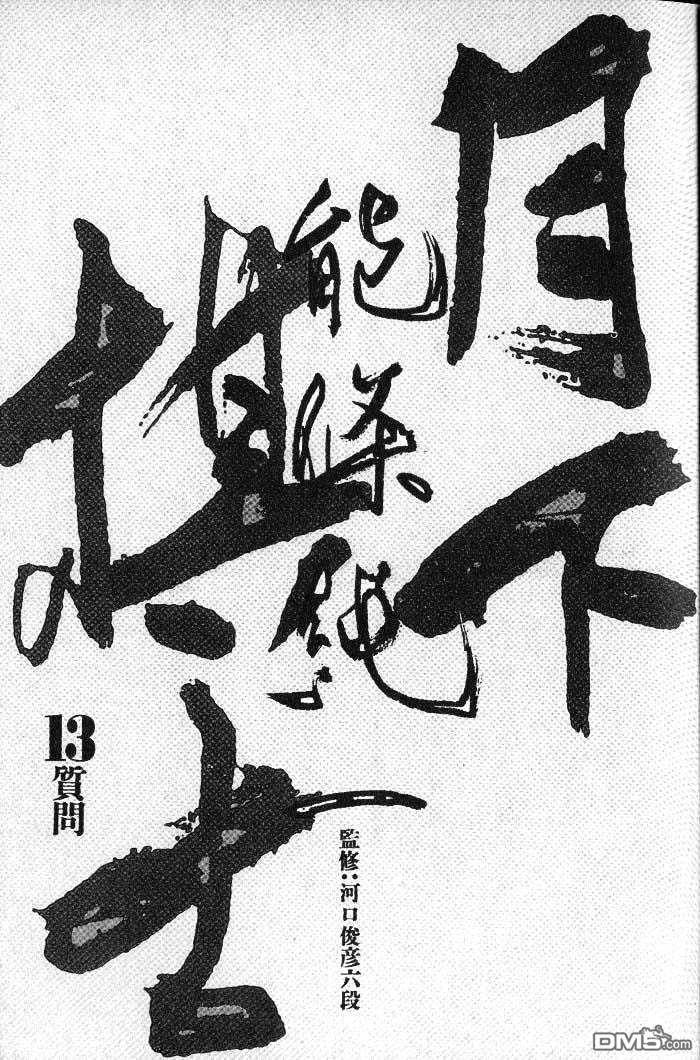 月下
棋士
能條純一
監修:河口俊彦六段
13
質問
DM5.com